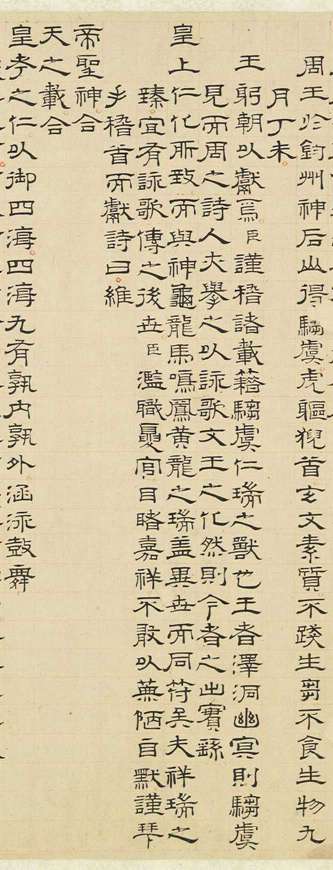 周王於鈞州神后山得騶虞虎軀猊首玄文素質不踐生芻不食生物九
月丁未
王躬朝以獻焉臣謹稽諸載籍騶虞仁瑞之獸也王者澤洞幽冥則騶虞
見而周之詩人亦舉之以詠歌文王之化然則今者之出實繇
皇上仁化所致而與神龜龍馬鳴鳳黃龍之瑞蓋異世而同符矣夫祥瑞之
臻宜有詠歌傳之後世臣濫職夏官目睹嘉祥不敢以蕪陋自默謹拜
手稽首而獻詩曰維
帝聖神合
天之載合
皇考之仁以御四海四海九有孰內孰外涵泳鼓舞